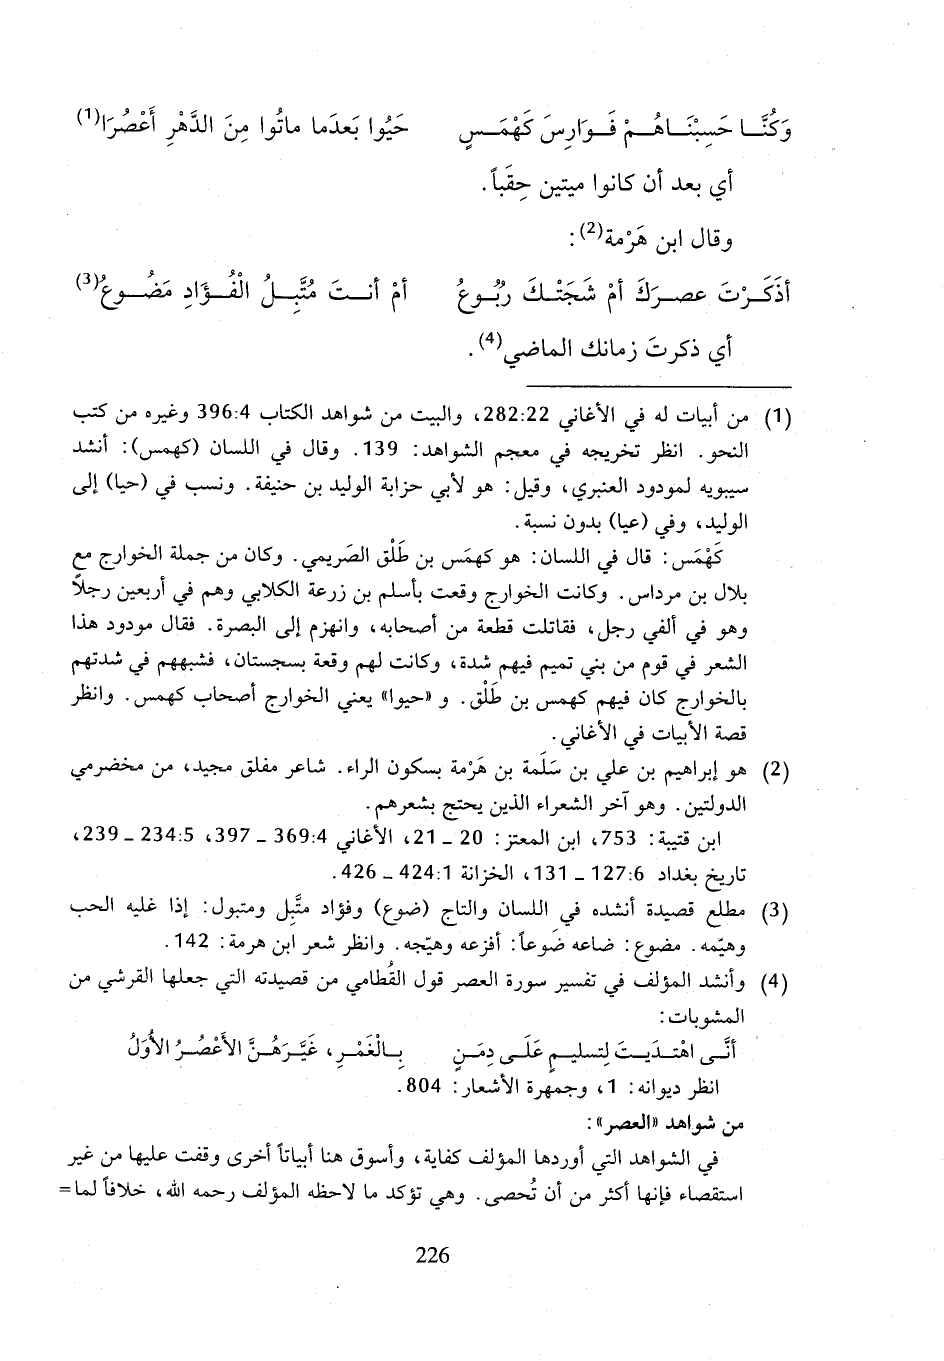 وَكُنَّا حَسِبْنَاهُمْ فَوَارِسَ كَهْمَسٍ حَيُوا بَعدَما ماتُوا مِنَ الدَّهْرِ أَعْصُرَا(1)
أي بعد أن كانوا ميتين حِقَباً.
وقال ابن هَرْمة(2):
أذَكَرْتَ عصرَكَ أمْ شَجَتْكَ رُبُوعُ أمْ أنتَ مُتَّبِلُ الْفُؤَادِ مَضُوعُ(3)
أي ذكرتَ زمانك الماضي(4).
(1) من أبيات له في الأغاني 282:22، والبيت من شواهد الكتاب 396:4 وغيره من كتب
النحو. انظر تخريجه في معجم الشواهد: 139. وقال في اللسان (كهمس): أنشد
سيبويه لمودود العنبري، وقيل: هو لأبي حزابة الوليد بن حنيفة. ونسب في (حيا) إلى
الوليد، وفي (عيا) بدون نسبة.
كَهْمَس: قال في اللسان: هو كهمَس بن طَلْق الصَريمي. وكان من جملة الخوارج مع
بلال بن مرداس. وكانت الخوارج وقعت بأسلم بن زرعة الكلابي وهم في أربعين رجلاً
وهو في ألفي رجل، فقاتلت قطعة من أصحابه، وانهزم إلى البصرة. فقال مودود هذا
الشعر في قوم من بني تميم فيهم شدة، وكانت لهم وقعة بسجستان، فشبههم في شدتهم
بالخوارج كان فيهم كهمس بن طَلْق. و «حيوا» يعني الخوارج أصحاب كهمس. وانظر
قصة الأبيات في الأغاني.
(2) هو إبراهيم بن علي بن سَلَمة بن هَرْمة بسكون الراء. شاعر مفلق مجيد، من مخضرمي
الدولتين. وهو آخر الشعراء الذين يحتج بشعرهم.
ابن قتيبة: 753، ابن المعتز: 20 ـ 21، الأغاني 369:4 ـ 397، 234:5 ـ 239،
تاريخ بغداد 127:6 ـ 131، الخزانة 424:1 ـ 426.
(3) مطلع قصيدة أنشده في اللسان والتاج (ضوع) وفؤاد متَّبل ومتبول: إذا غلبه الحب
وهيّمه. مضوع: ضاعه ضَوعاً: أفزعه وهيّجه. وانظر شعر ابن هرمة: 142.
(4) وأنشد المؤلف في تفسير سورة العصر قول القُطامي من قصيدته التي جعلها القرشي من
المشوبات:
أنَّى اهْتَدَيتَ لِتسليمٍ عَلَى دِمَنٍ بِالْغَمْرِ، غَيَّرَهُنَّ الأَعْصُرُ الأُوَلُ
انظر ديوانه: 1، وجمهرة الأشعار: 804.
من شواهد «العصر»:
في الشواهد التي أوردها المؤلف كفاية، وأسوق هنا أبياتاً أخرى وقفت عليها من غير
استقصاء فإنها أكثر من أن تُحصى. وهي تؤكد ما لاحظه المؤلف رحمه الله، خلافاً لما=
226